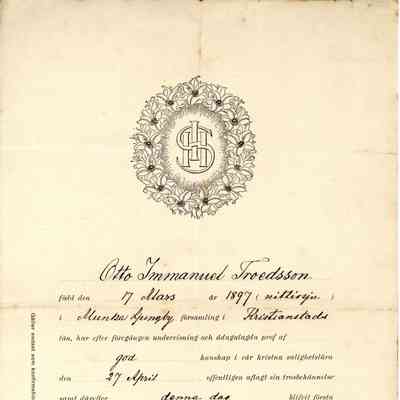 IHS
Otto Immanuel Troedsson
född den 17 Mars år 1897 (nittisju)
i Munka Ljungby församling i Kristianstads
län, har efter föregången undervisning och ådagalagda prof af
god kunskap i vår kristna salighetslära
den 27 April offentligen aflagt sin trosbekännelse
samt därefter denna dag blifvit första
Gäller endast som konfirmations